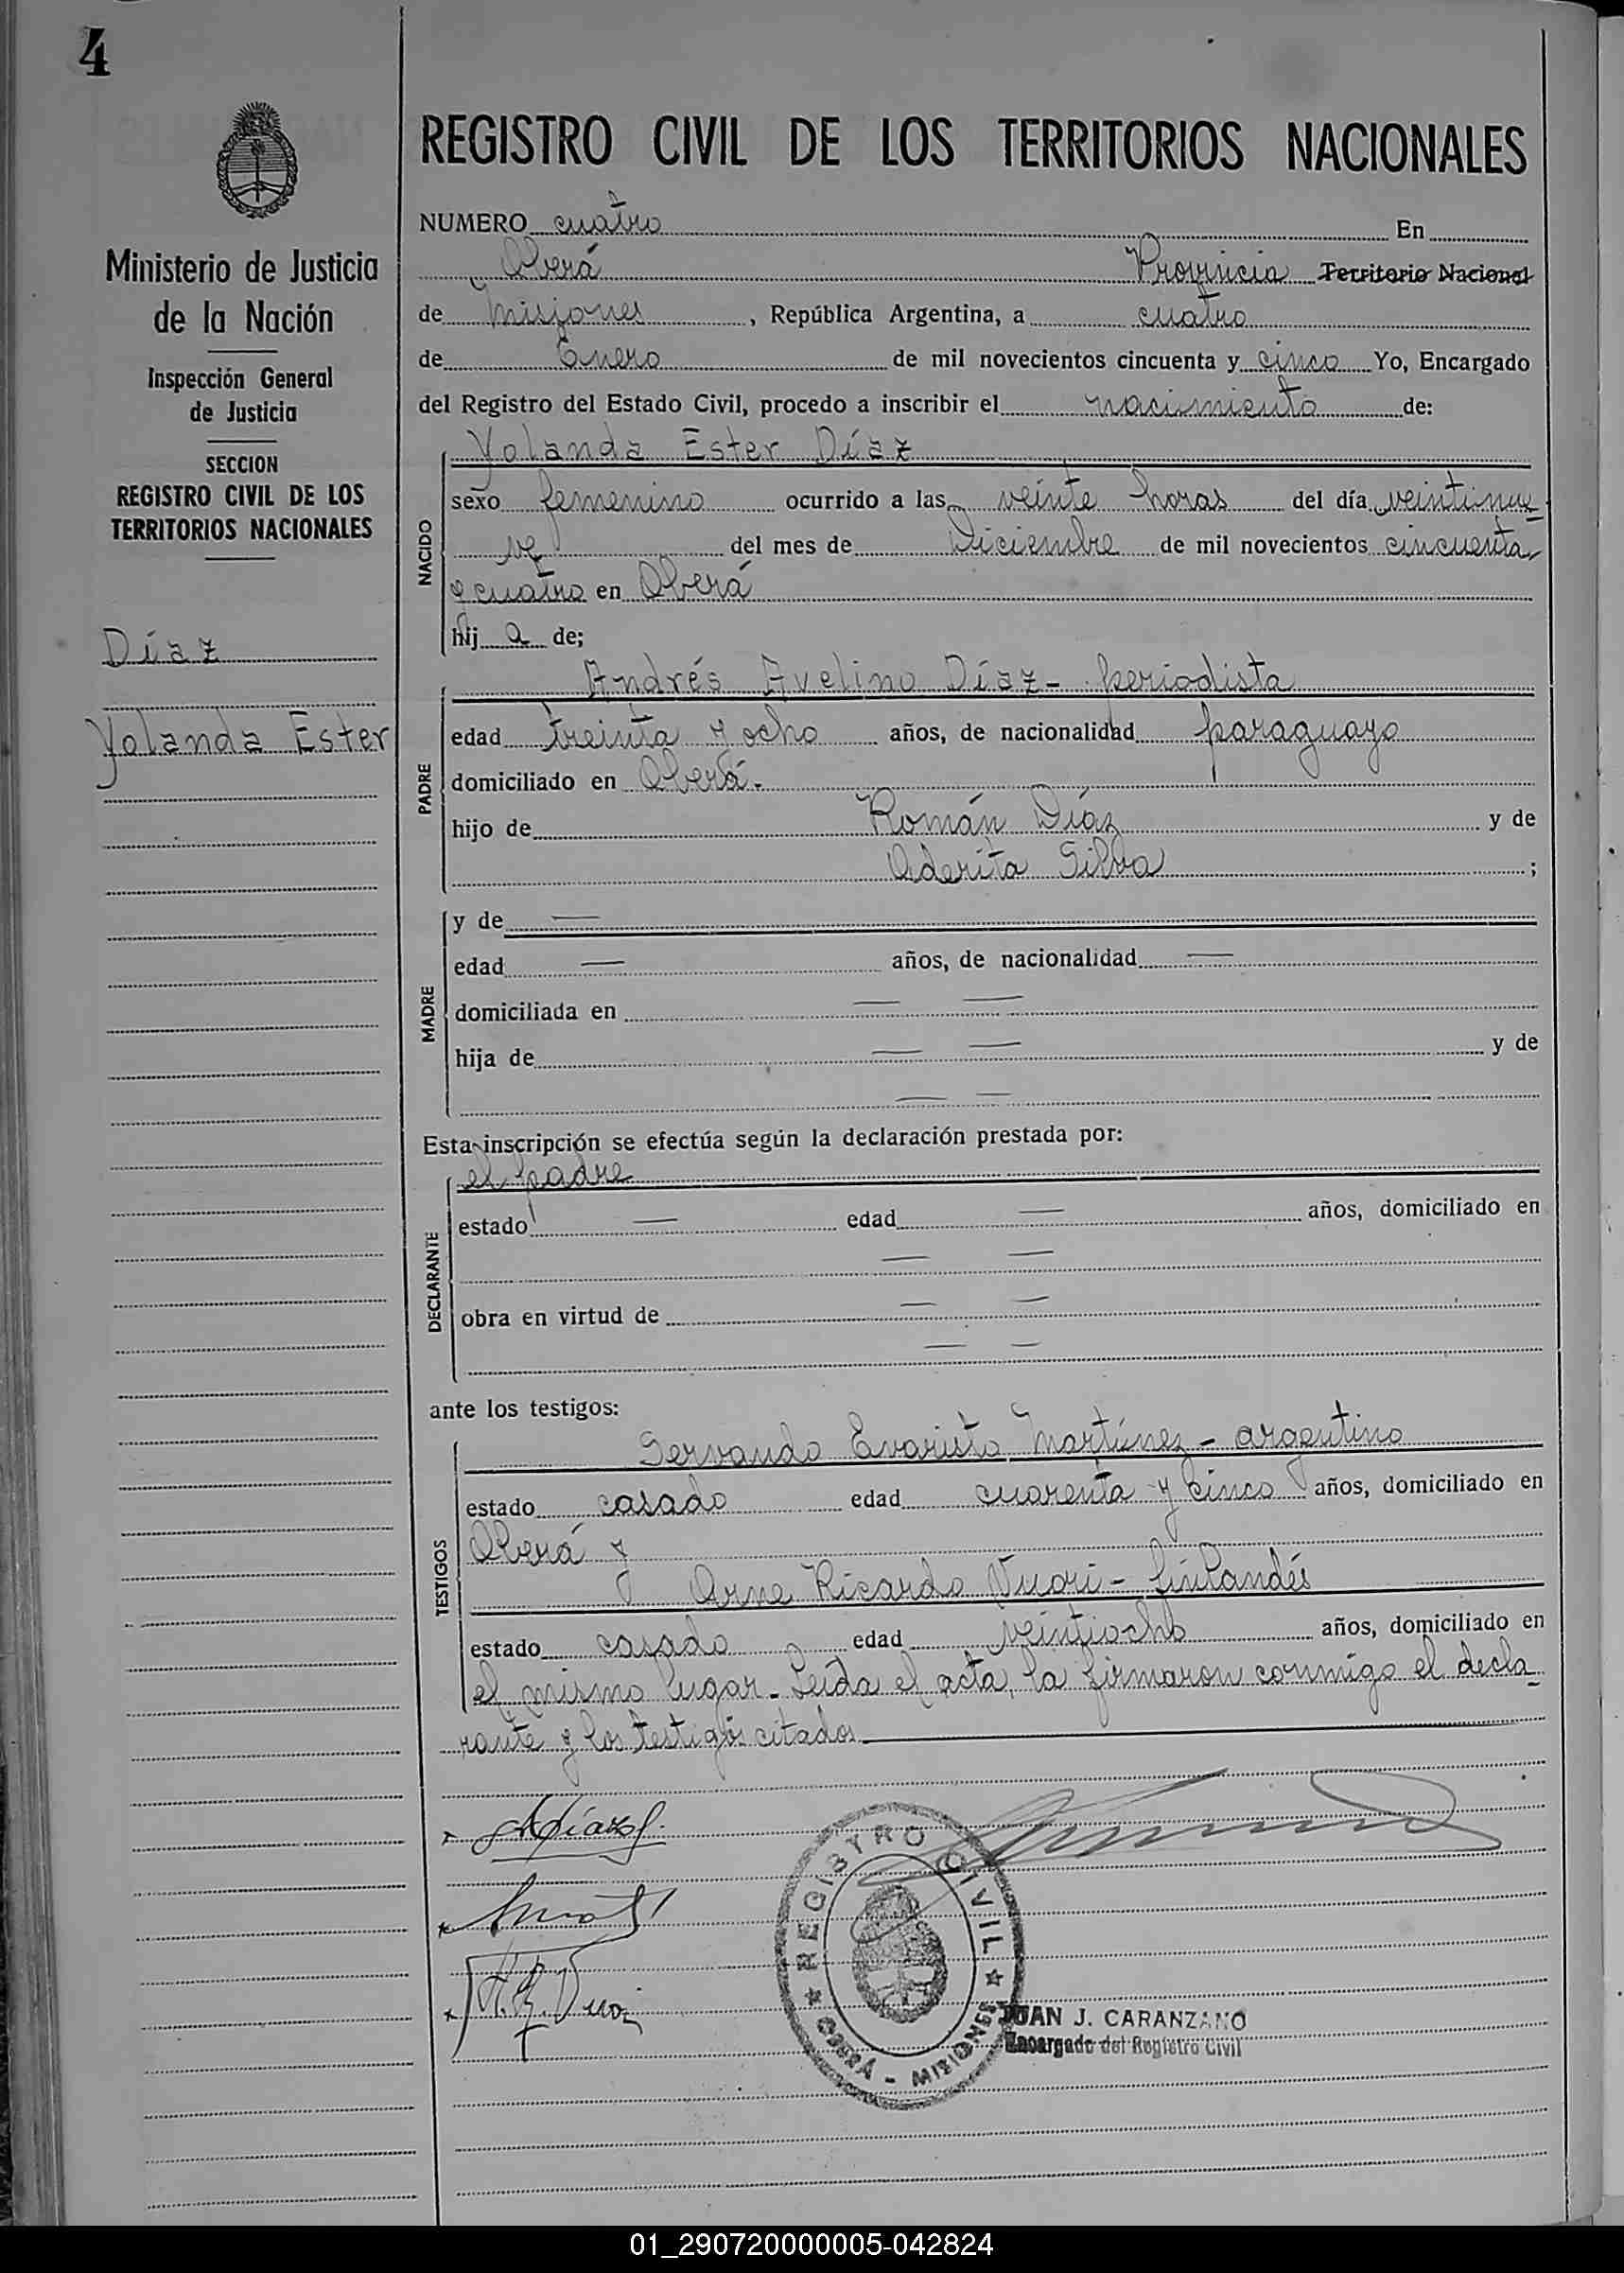 4
REGISTRO CIVIL DE LOS TERRITORIOS NACIONALES
Ministerio de Justicia
de la Nación
Inspección General
de Justicia
SECCION
REGISTRO CIVIL DE LOS
TERRITORIOS NACIONALES
Díaz
Yolanda Ester
NUMERO cuatro En
Oberá Provincia Territorio Nacional
de Misiones, República Argentina, a cuatro
de Enero de mil novecientos cincuenta y cinco Yo, Encargado
del Registro del Estado Civil, procedo a inscribir el nacimiento de:
NACIDO
Yolanda Ester Díaz
sexo femenino ocurrido a las veinte horas del día veintinue
ve del mes de Diciembre de mil novecientos cincuenta
y cuatro en Oberá
hij a de;
PADRE
Andrés Avelino Díaz - periodista
edad treinta y ocho años, de nacionalidad paraguayo
domiciliado en Oberá.
hijo de Román Díaz y de
Oderita Silva ;
MADRE
y de —
edad — años, de nacionalidad —
domiciliada en — —
hija de — — y de
— —
Esta inscripción se efectúa según la declaración prestada por:
DECLARANTE
el padre
estado — edad — años, domiciliado en
— —
obra en virtud de — —
— —
ante los testigos:
TESTIGOS
Servando Evaristo Martínez - argentino
estado casado edad cuarenta y cinco años, domiciliado en
Oberá y
Arne Ricardo Vuori - finlandés
estado casado edad veintiocho años, domiciliado en
el mismo lugar. Leída el acta, la firmaron conmigo el decla
rante y los testigos citados
REGISTRO CIVIL
OBERÁ - MISIONES
JUAN J. CARANZANO
Encargado del Registro Civil
01_290720000005-042824